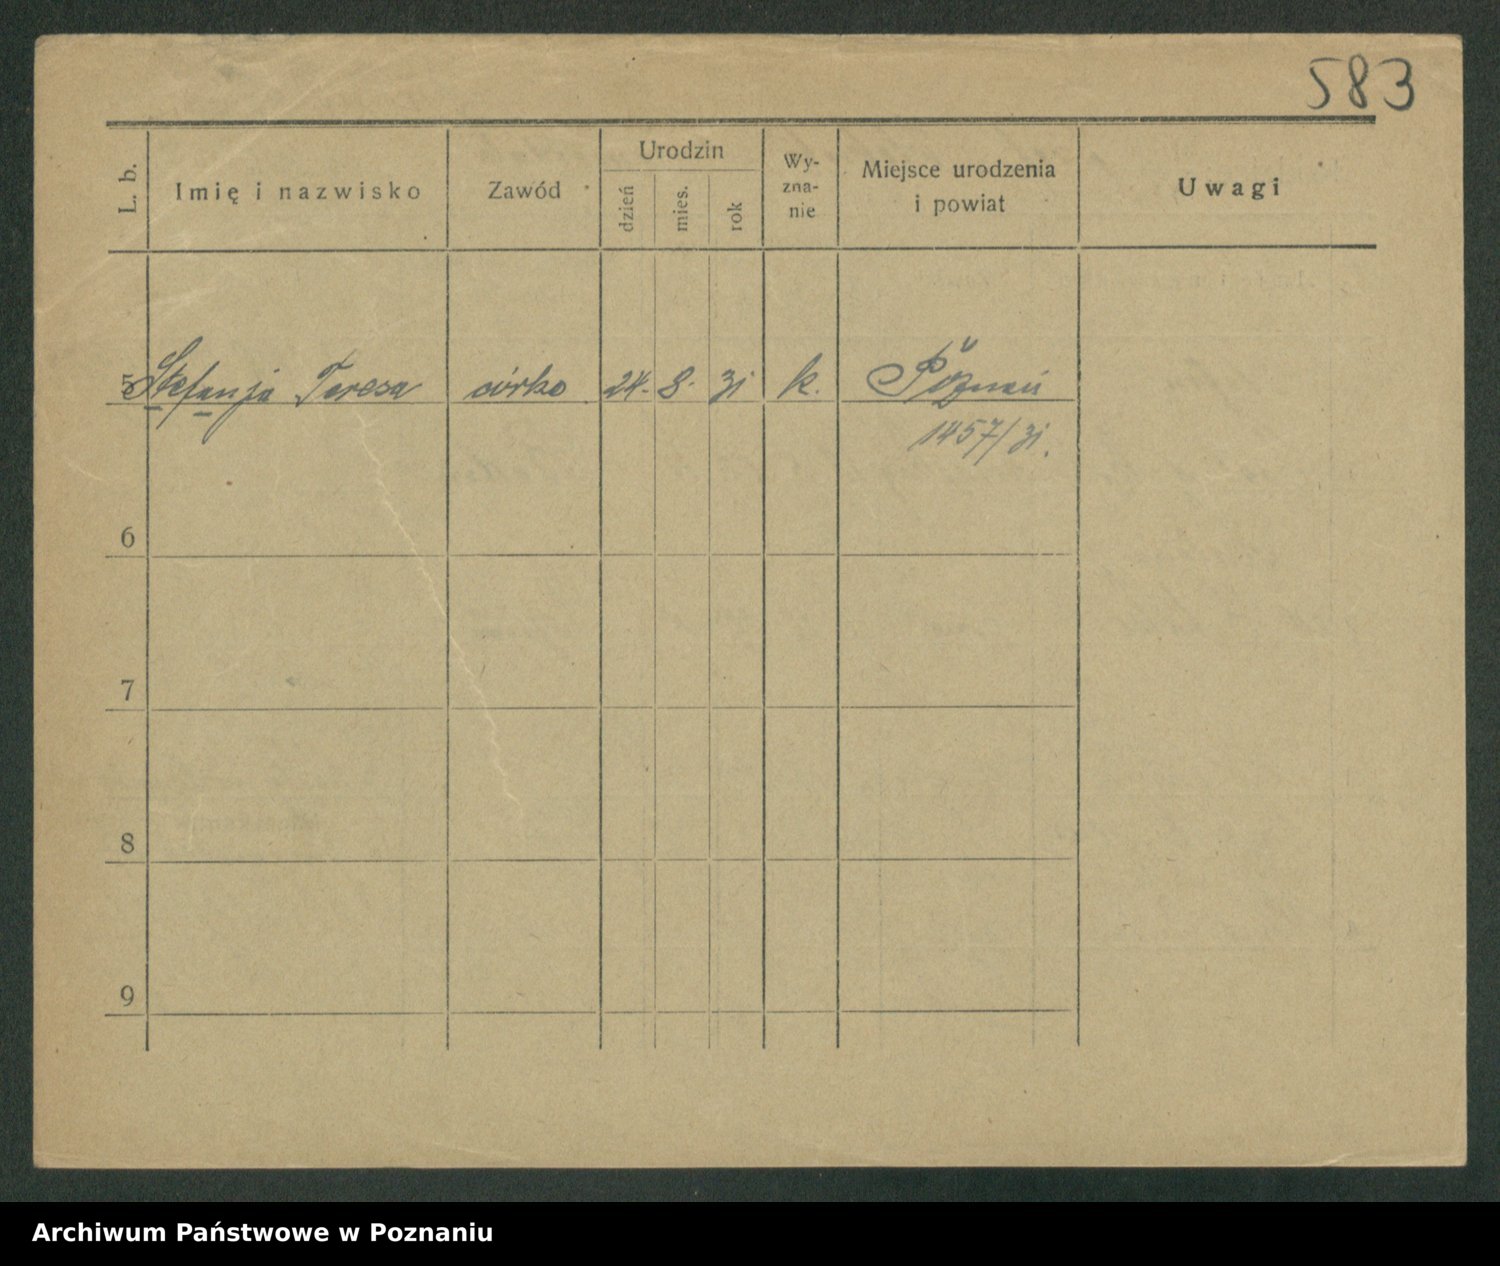 583
L. b. Imię i nazwisko Zawód Urodzin dzień mies. rok Wy-zna-nie Miejsce urodzenia i powiat Uwagi
5 Stefanja Teresa córka 24. 8. 31 k. Poznań
1457/31.
6
7
8
9
Archiwum Państwowe w Poznaniu